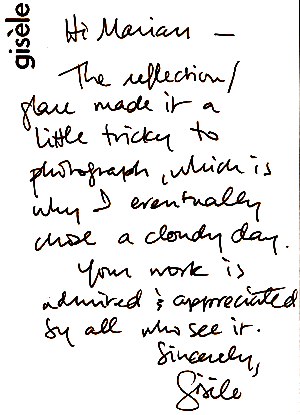 gisèle
Hi Marian —
The reflection/
glare made it a
little tricky to
photograph, which is
why I eventually
chose a cloudy day.
Your work is
admired & appreciated
by all who see it.
Sincerely,
Gisèle